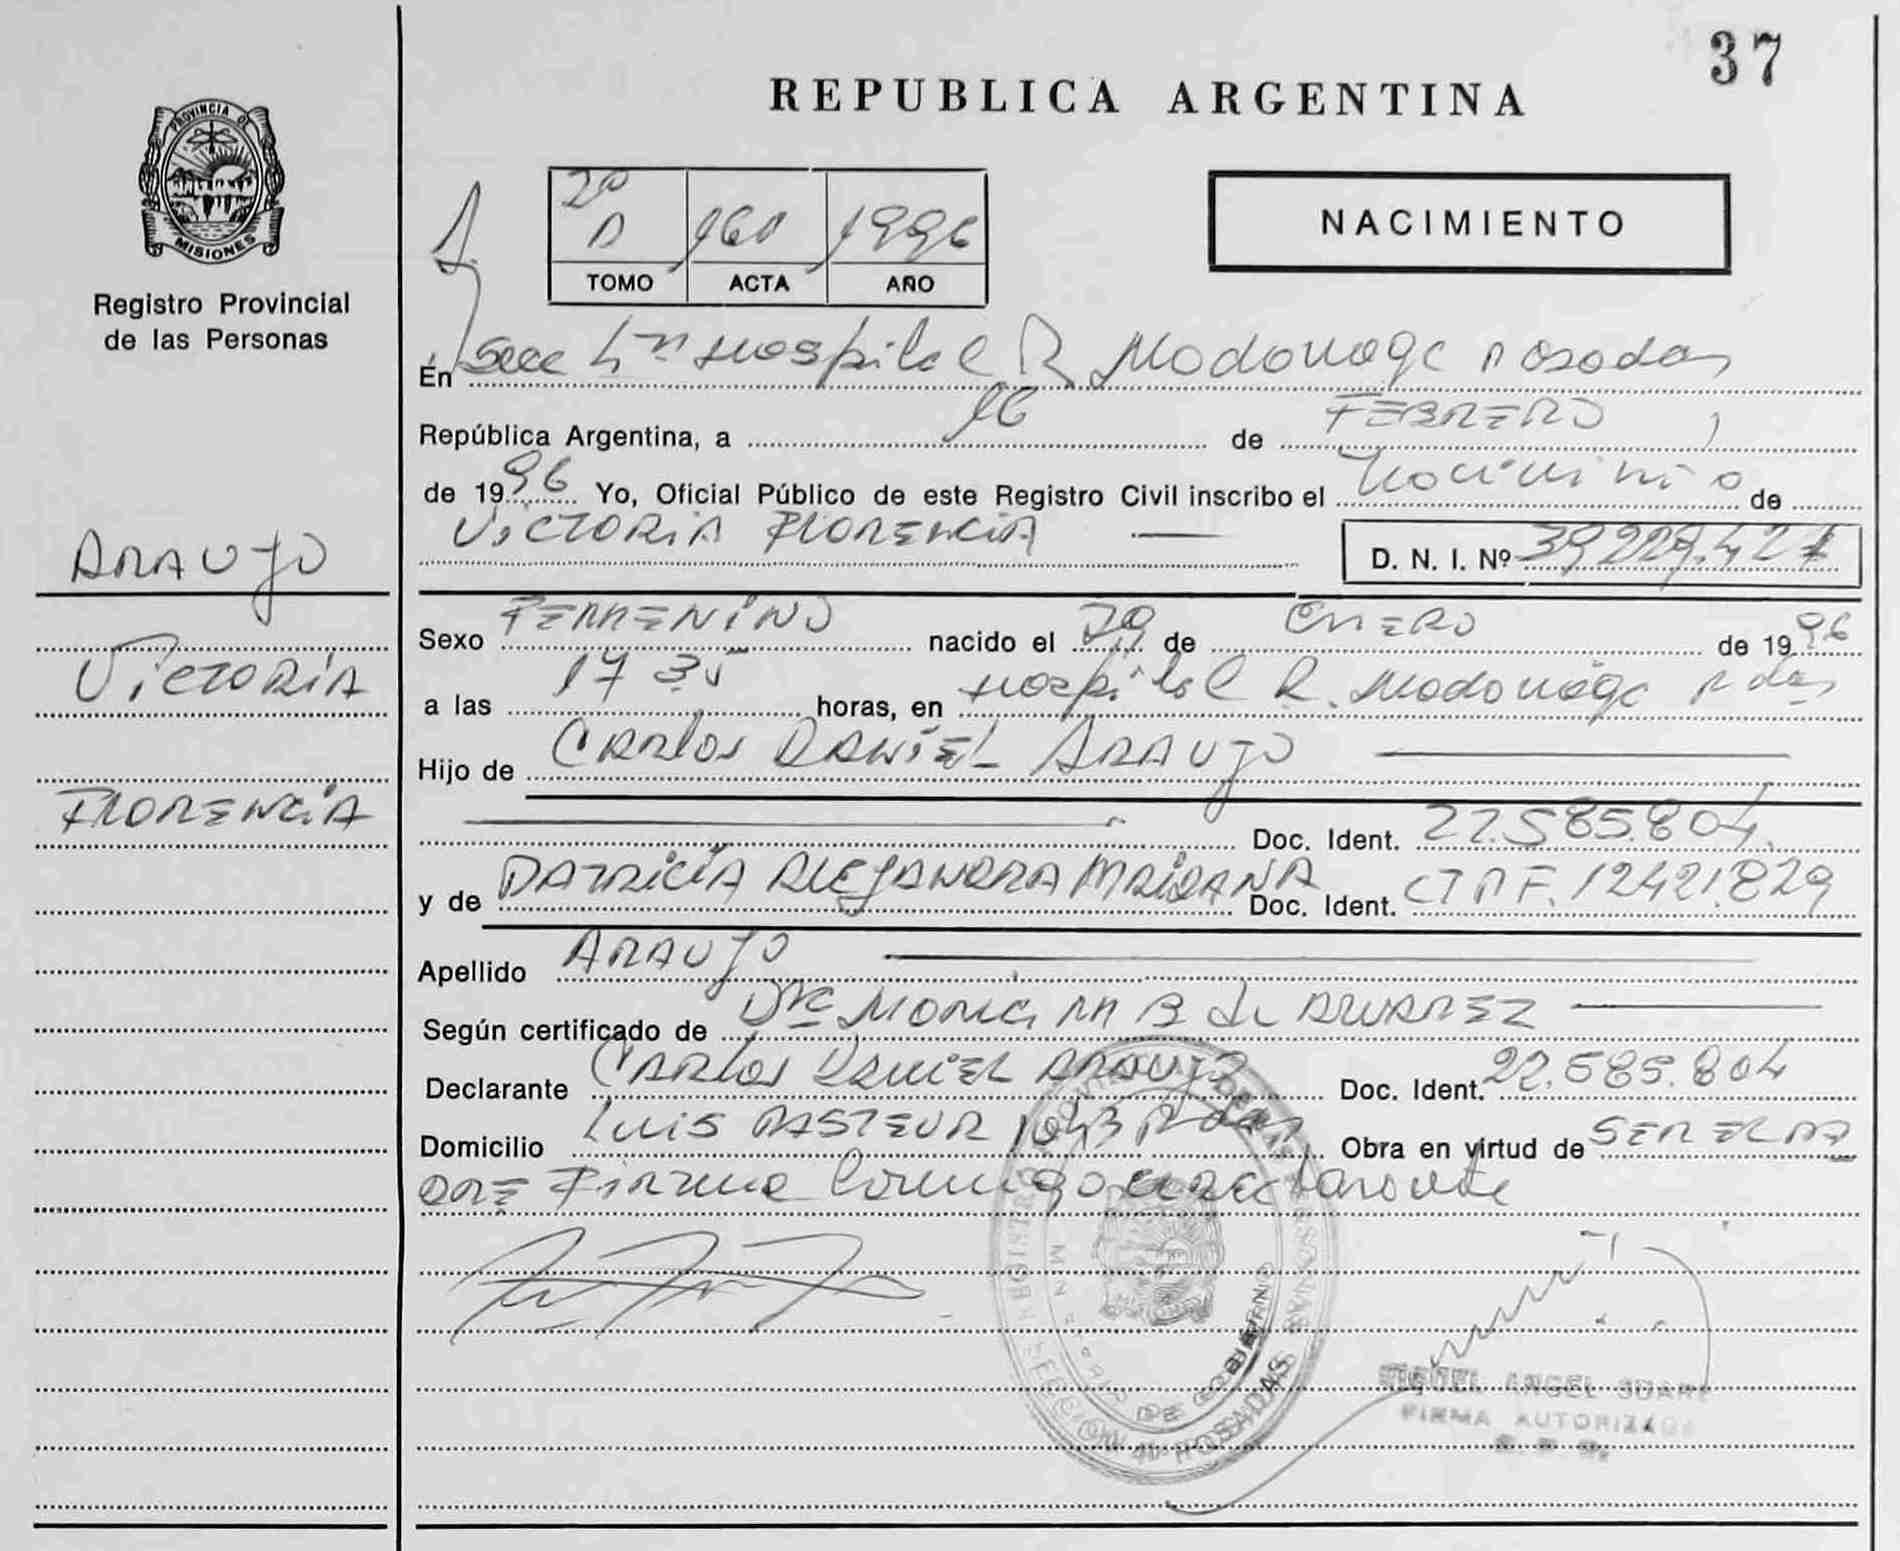 37
REPUBLICA ARGENTINA
PROVINCIA DE
MISIONES
Registro Provincial
de las Personas
NACIMIENTO
2º D 160 1996
TOMO ACTA AÑO
En Secc Hospital R Madariaga Posadas
República Argentina, a 16 de FEBRERO
de 1996 Yo, Oficial Público de este Registro Civil inscribo el Nacimiento de
VICTORIA FLORENCIA D. N. I. Nº 39.229.421
ARAUJO
VICTORIA
FLORENCIA
Sexo FEMENINO nacido el de ENERO de 1996
a las 17 35 horas, en Hospital R. Madariaga Pdas
Hijo de CARLOS DANIEL ARAUJO
Doc. Ident. 22.585.804.
y de PATRICIA ALEJANDRA MAIDANA Doc. Ident. 12421.829
Apellido ARAUJO
Según certificado de Dra MONICA M B de ALVAREZ
Declarante CARLOS DANIEL ARAUJO Doc. Ident. 22.585.804
Domicilio LUIS PASTEUR 1043 Pdas Obra en virtud de SER EL PA
DRE Firma Conmigo declarante
REGISTRO PROVINCIAL DE LAS PERSONAS
MINISTERIO DE GOBIERNO
SECCION 4º POSADAS
MIGUEL ANGEL SUAREZ
FIRMA AUTORIZADA